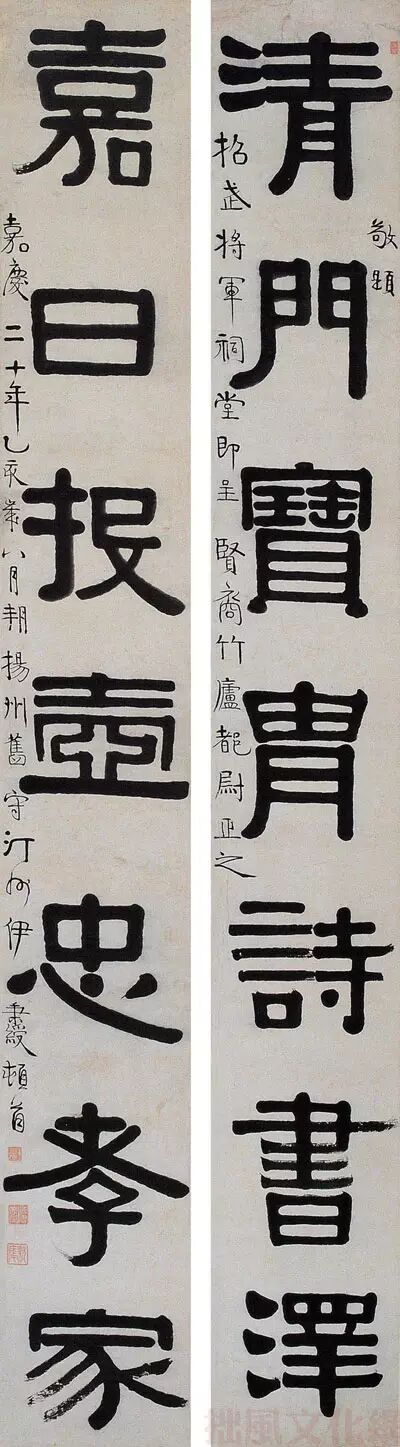 清門寶胄詩書澤
敬題
招武將軍祠堂即呈賢裔竹廬都尉正之
嘉日投壺忠孝家
嘉慶二十年乙亥歲八月朔揚州舊守汀州伊秉綬頓首
拙風文化網